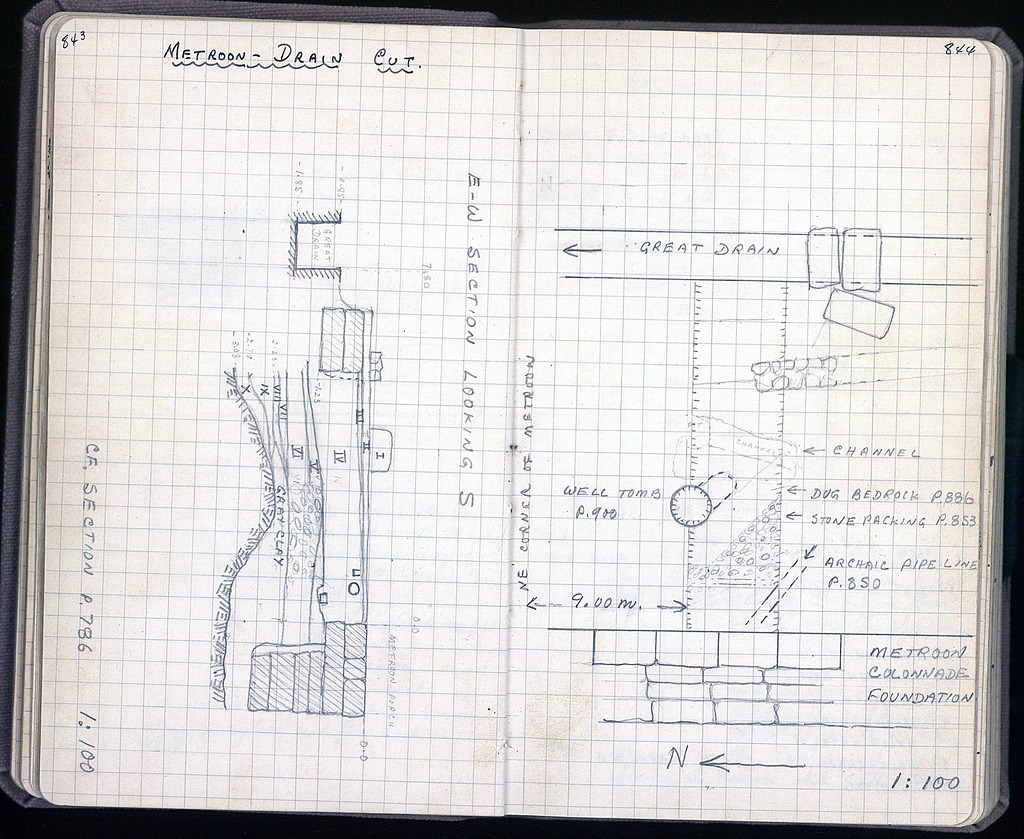 843
METROON - DRAIN CUT.
E-W SECTION LOOKING S
-1.85
-0.85
GREAT DRAIN
7.80
-2.25
-1.25
X
IX
VIII
VII
VI
V
IV
III
II
I
GRAY CLAY
0.0
METROON PORCH
0.0
CF. SECTION P. 786 1:100
844
GREAT DRAIN
CHANNEL
CHANNEL
WELL TOMB
P.900
DUG BEDROCK P.886
STONE PACKING P.853
ARCHAIC PIPE LINE
P.850
NE CORNER OF METROON
9.00 m.
METROON
COLONNADE
FOUNDATION
N
1:100